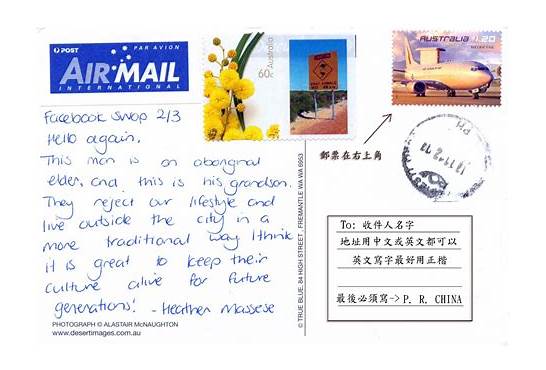 POST PAR AVION
AIR MAIL
INTERNATIONAL
60c Australia
AUSTRALIA $1.20
Facebook swap 2/3
Hello again.
This man is an aboriginal
elder, and this is his grandson.
They reject our lifestyle and
live outside the city in a
more traditional way. I think
it is great to keep their
culture alive for future
generations! - Heather Massese
PHOTOGRAPH © ALASTAIR McNAUGHTON
www.desertimages.com.au
© TRUE BLUE, 84 HIGH STREET, FREMANTLE WA 6953
郵票在右上角
To: 收件人名字
地址用中文或英文都可以
英文寫字最好用正楷
最後必須寫-> P. R. CHINA